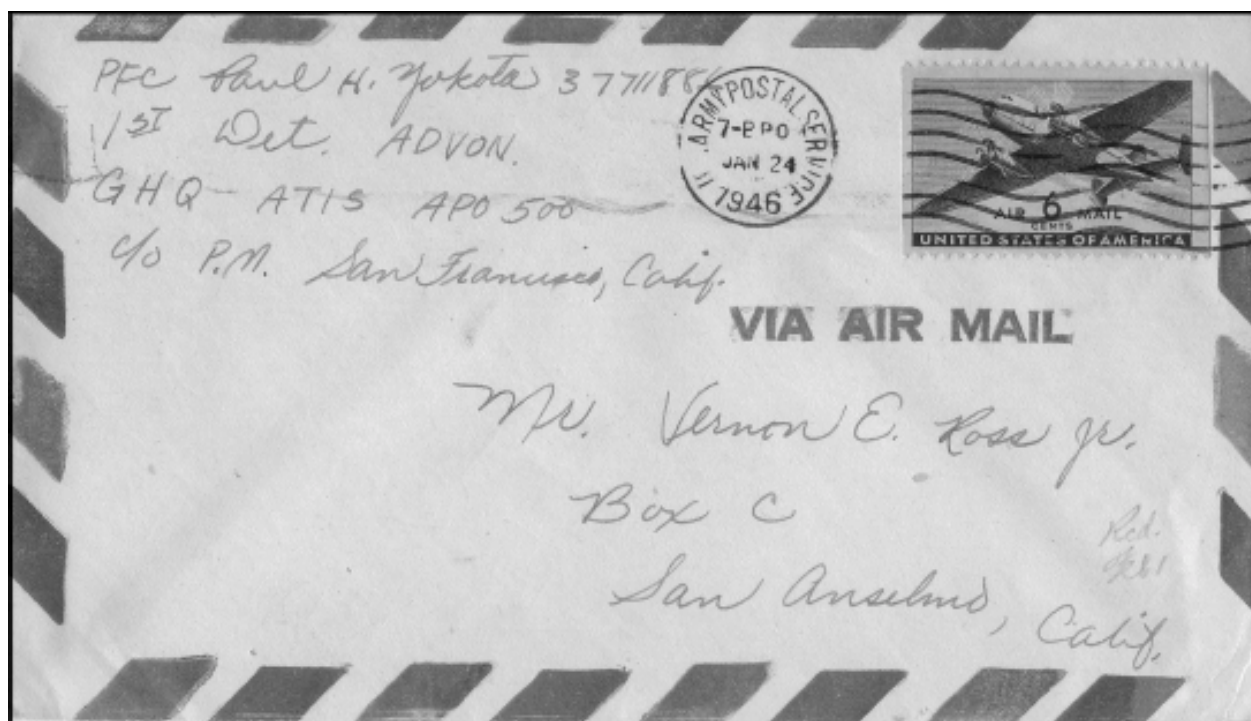 PFC Paul H. Yokota
1st Det. ADVON.
GHQ - ATIS APO 500
c/o P.M. San Francisco, Calif.
ARMY POSTAL SERVICE
JAN 24
1946
AIR 6 MAIL
CENTS
UNITED STATES OF AMERICA
VIA AIR MAIL
Mr. Vernon E. Ross Jr.
Box C
San Anselmo, Calif.
Rcd.